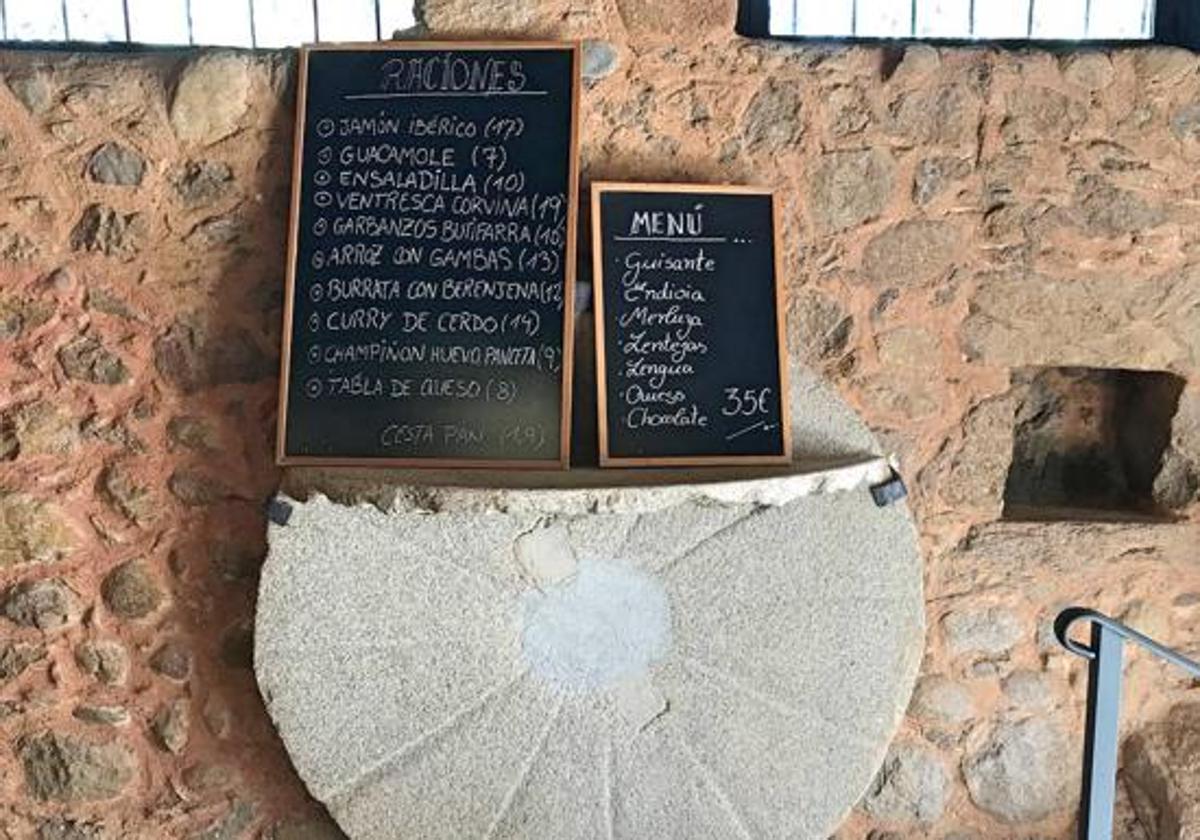 RACIONES
JAMÓN IBÉRICO (17)
GUACAMOLE (7)
ENSALADILLA (10)
VENTRESCA CORVINA (19)
GARBANZOS BUTIFARRA
ARROZ CON GAMBAS (13)
BURRATA CON BERENJENA (12
CURRY DE CERDO (14)
CHAMPIÑON HUEVO PANCETA (9)
TABLA DE QUESO (8)
CESTA PAN (1,9)
MENÚ ...
· Guisante
· Endivia
· Merluza
· Lentejas
· Lengua
· Queso
· Chocolate
35€